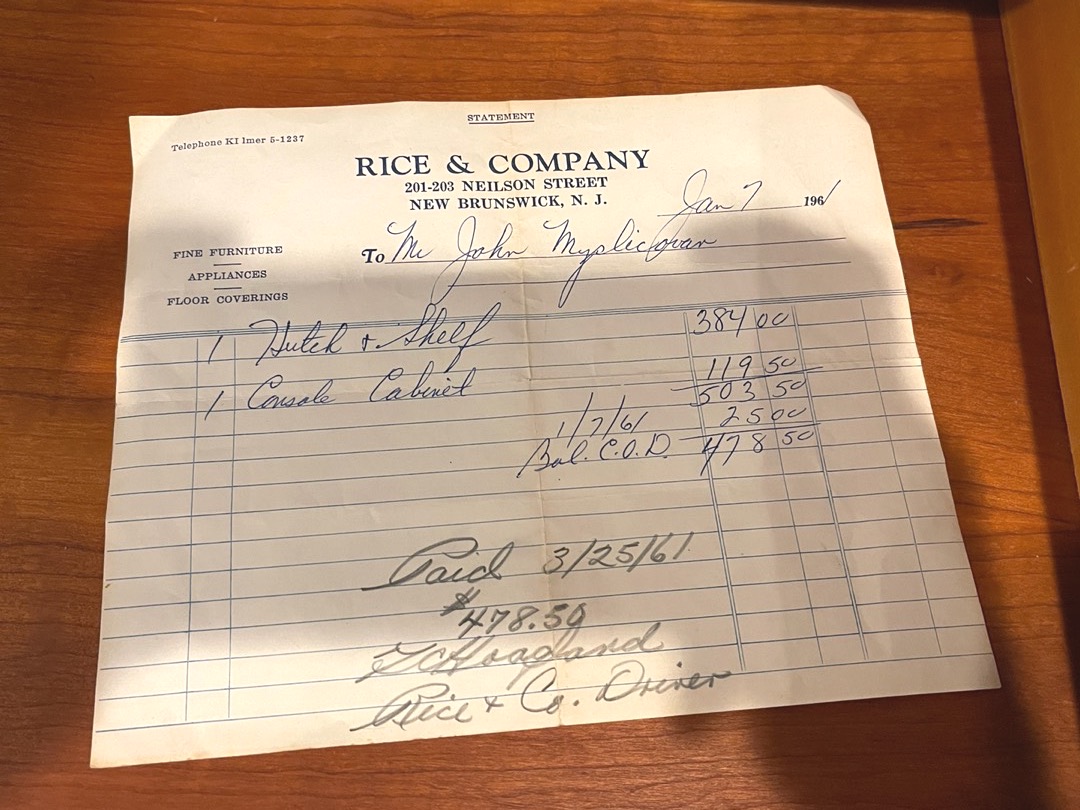 STATEMENT
Telephone KI lmer 5-1237
RICE & COMPANY
201-203 NEILSON STREET
NEW BRUNSWICK, N. J.
Jan 7 1961
To Mr John
FINE FURNITURE
APPLIANCES
FLOOR COVERINGS
1 Hutch & Shelf 384 00
1 Console Cabinet 119 50
503 50
1/7/61 25 00
Bal. C.O.D. 478 50
Paid 3/25/61
$478.50
Hoagland
Rice & Co. Driver